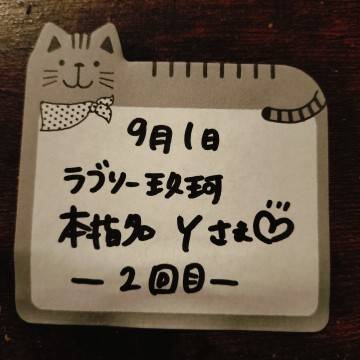 9月1日
ラブリー玖珂
本指名 Yさま♡
ー2回目ー